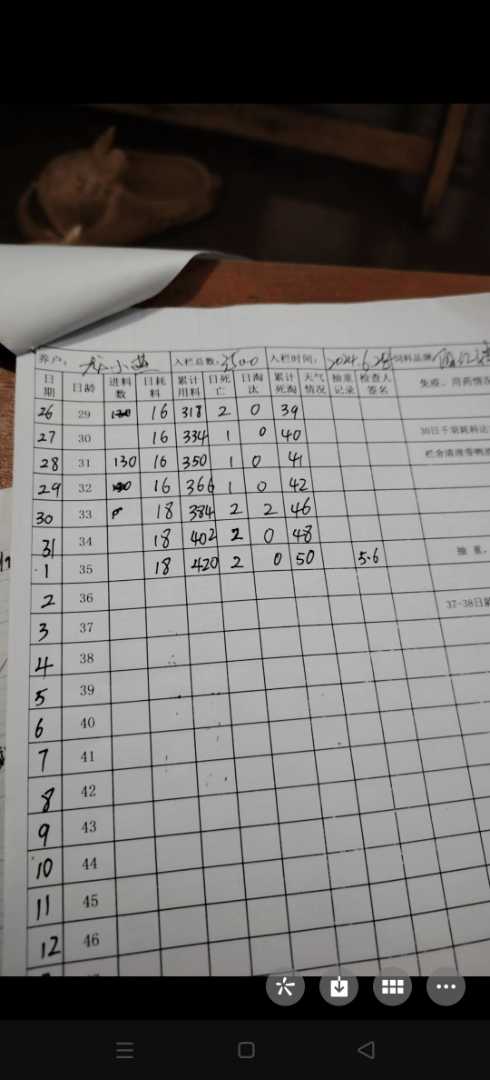 养户： 小 入栏总数：3500 入栏时间：2024.6.28 饲料品牌
日期 日龄 进料数 日耗料 累计用料 日死亡 日淘汰 累计死淘 天气情况 抽重记录 检查人签名 免疫、用药情况
26 29 16 318 2 0 39
27 30 16 334 1 0 40 30日千羽耗料达
28 31 130 16 350 1 0 41 栏舍清理零鸭
29 32 16 366 1 0 42
30 33 18 384 2 2 46
31 34 18 402 2 0 48
1 35 18 420 2 0 50 5.6 抽重，
2 36 37-38日
3 37
4 38
5 39
6 40
7 41
8 42
9 43
10 44
11 45
12 46